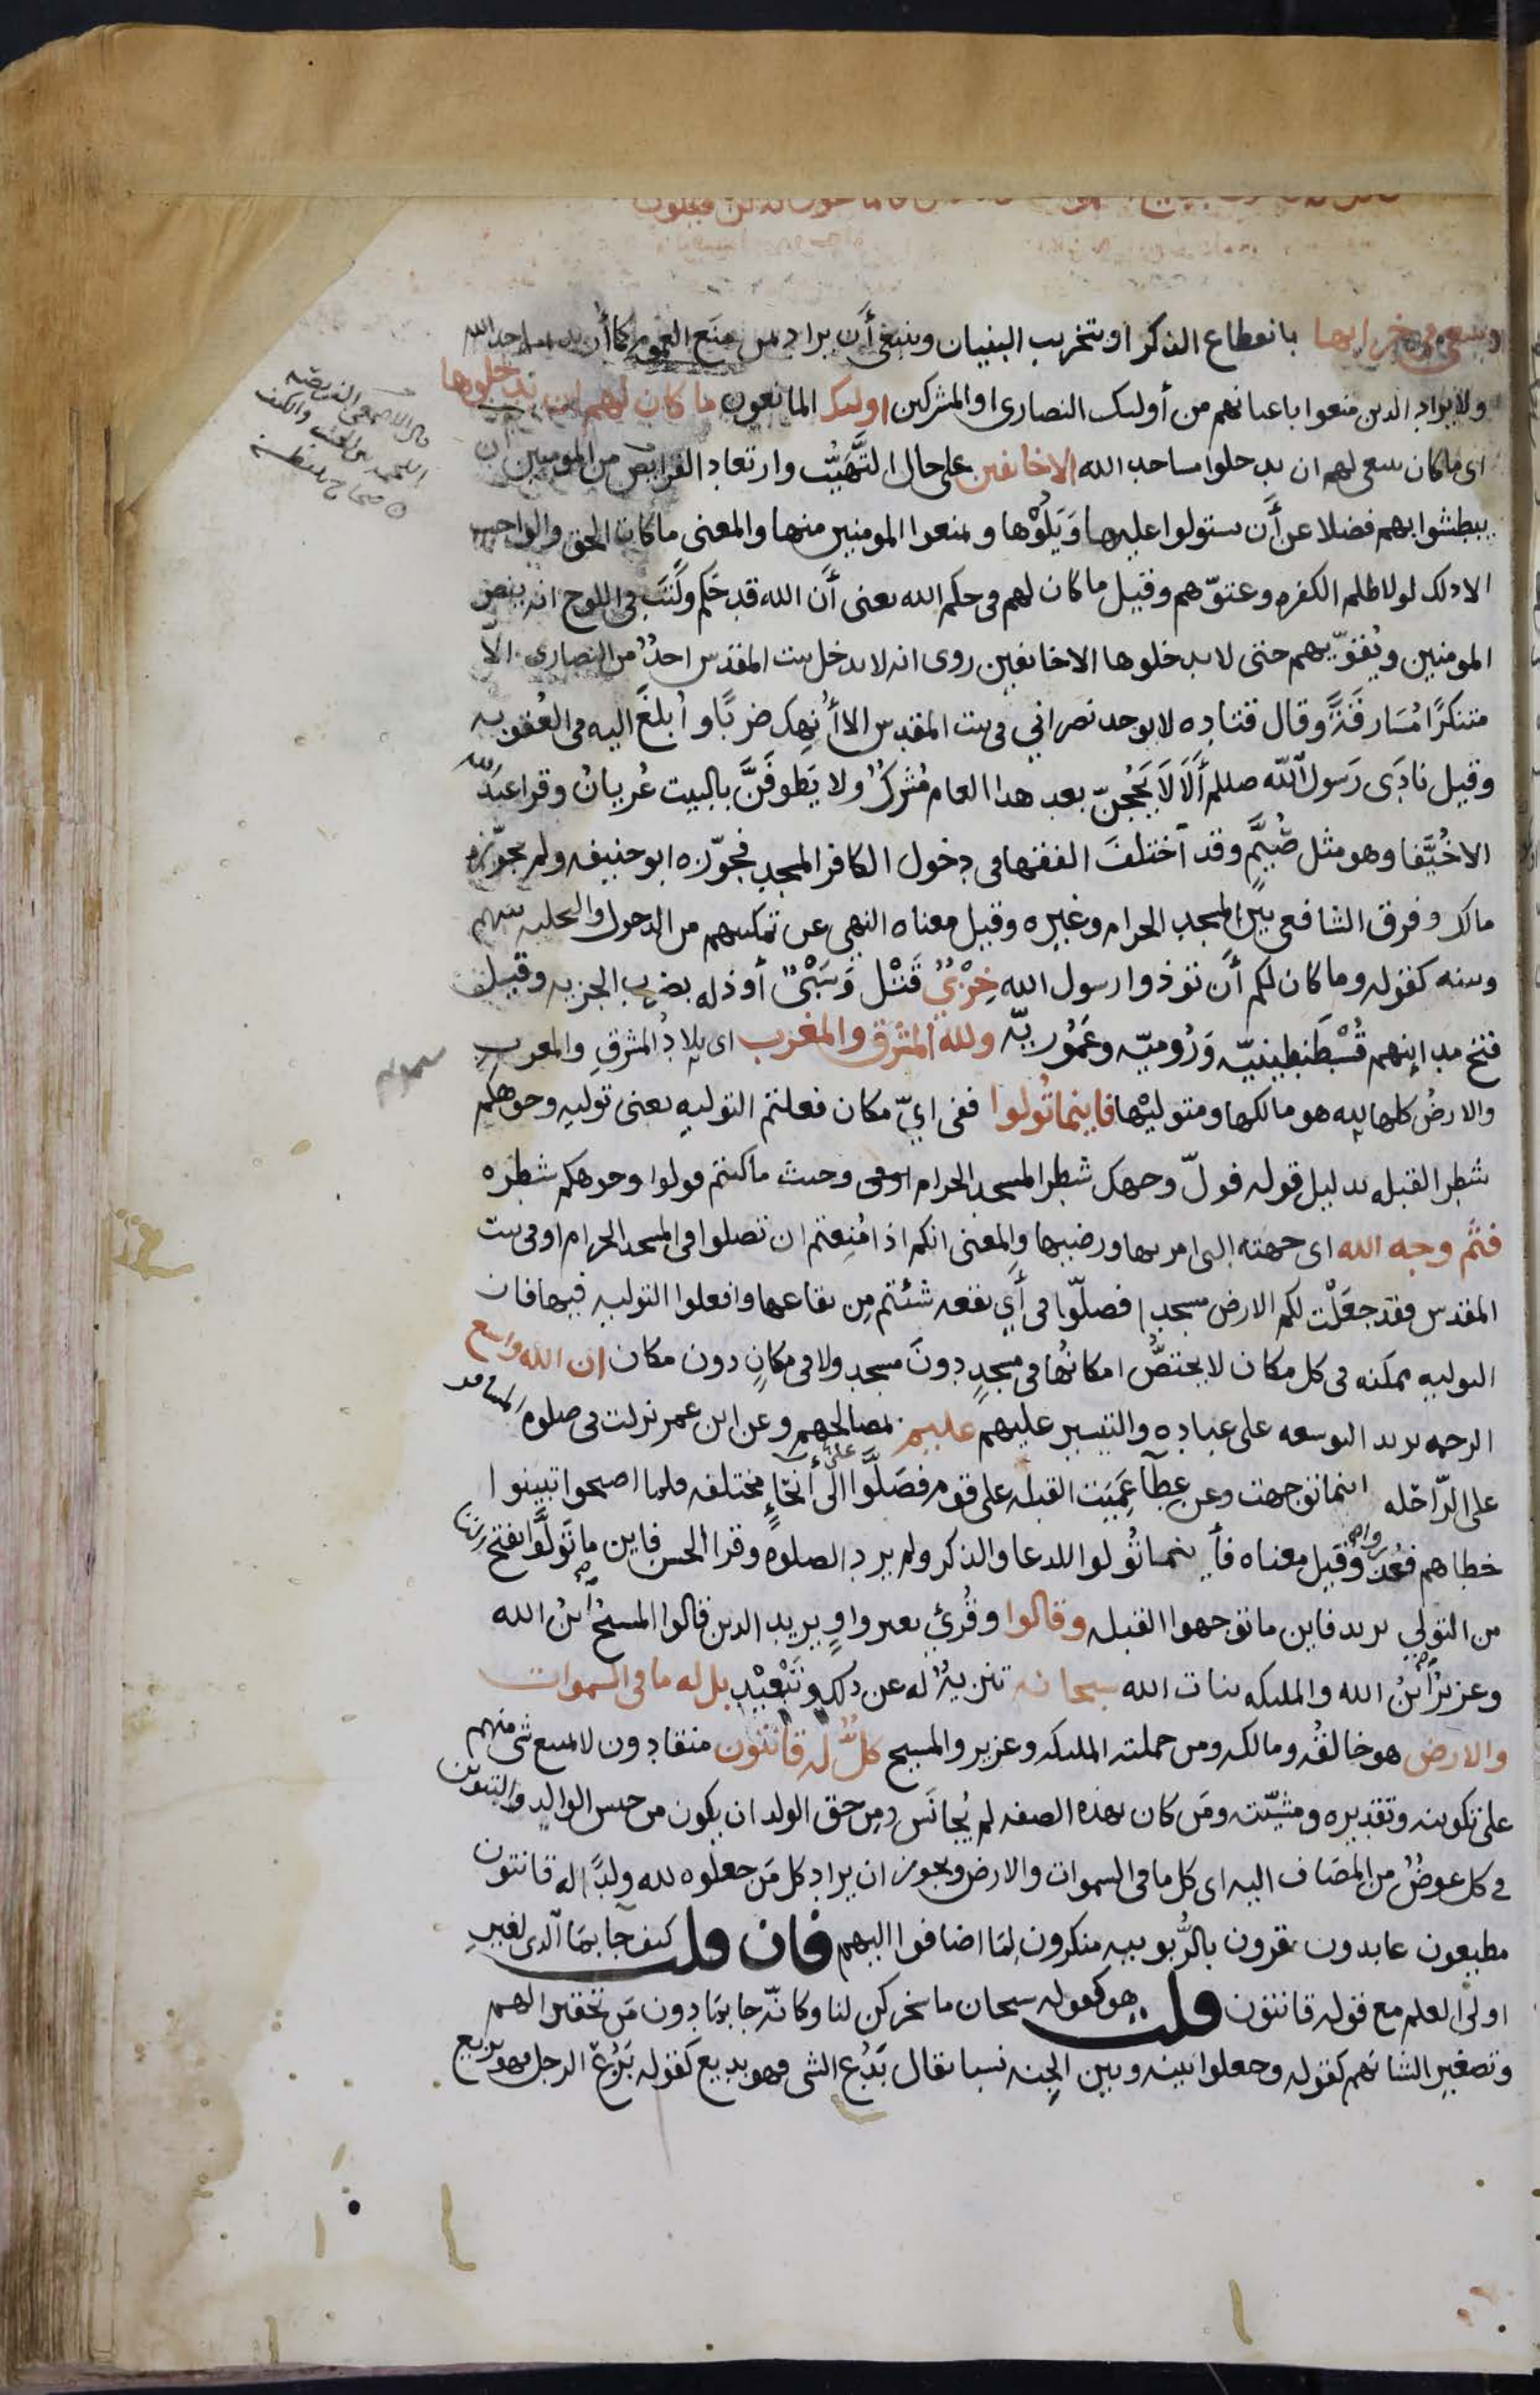 وسعى في خرابها بانقطاع الذكر او بتخريب البنيان وينبغى أن يراد بمن منع العموم كما أريد بمساجد الله
ولا يراد الذين منعوا باعيانهم من أولئك النصارى او المشركين اوليك المانعون ما كان لهم ان يدخلوها
اى ما كان ينبغى لهم ان يدخلوا مساجد الله الا خايفين على حال التَّهَيُّب وارتعاد الفرايص من المومنين ان
يبطشوا بهم فضلا عن أَن يستولوا عليها وَيَلُوْها ويمنعوا المومنين منها والمعنى ما كان الحق والواجب
الا ذلك لولا ظلم الكفره وعتوّهم وقيل ما كان لهم فى حكم الله يعنى أَن الله قد حَكم وكَتَبَ فى اللوح انه ينصر
المومنين ويُقوّيهم حتى لا يدخلوها الا خايفين روى انه لا يدخل بيت المقدس احدٌ من النصارى الا
متنكرًا مُسَارقَةً وقال قتاده لا يوجد نصرانى فى بيت المقدس الا أُنهِك ضربًا وأُبلغَ اليه فى العُقوبه
وقيل نادَى رَسول الله صللم أَلَا لَا يَحُجنّ بعد هذا العام مُشركٌ ولا يَطوفَنَّ بالبيت عُريانٌ وقرا عبدُ الله
الا خُيَّفا وهو مثل صُيَّم وقد آختلفَ الفقها فى دخول الكافر المسجد فجوّزه ابو حنيفه ولم يجوّزه
مالك وفرق الشافعى بين المسجد الحرام وغيره وقيل معناه النهى عن تمكينهم من الدخول والتخليه بينهم
وبينه كقوله وما كان لكم أَن توذوا رسول الله خِزْيٌ قَتْل وَسَبْىٌ أو ذله بضرب الجزيه وقيل
فتح مداينهم قُسْطَنطِينيّه وَرُوميّه وعَمُّوريّه ولله المشرق والمغرب اى بلادُ المشرقِ والمغرب
والارضُ كلها لله هو مالكها ومتوليْها فاينما تُولوا ففى ايّ مكان فعلتم التوليه يعنى توليه وجوهكم
شطر القبله بدليل قوله فولّ وجهك شطر المسجد الحرام وحيث ما كنتم فولوا وجوهكم شطره
فثَم وجه الله اى جهته التى امر بها ورضيها والمعنى انكم اذا مُنِعتم ان تصلوا فى المسجد الحرام او فى بيت
المقدس فقد جعَلْت لكم الارض مسجدا فصلّوا فى أَي بقعه شئتم مِن بقاعها وافعلوا التوليه فيها فان
التوليه ممكنه فى كل مكان لا يختصُّ امكانُها فى مسجدٍ دونَ مسجد ولا فى مكانٍ دون مكان ان الله واسع
الرحمه يريد التوسعه على عباده والتيسير عليهم عليم بمصالحهم وعن ابن عمر نزلت فى صلوه المسافر
على الرّاحله اينما توجهت وعن عطآ عَمِيَت القبله على قوم فصَلَّوا الى أَنحَاءٍ مختلفه فلما اصبحوا تبينوا
خطاهم فعُذروا وقيل معناه فأينما تُولوا للدعا والذكر ولم يرد الصلوه وقرا الحسن فاين ما تَولَّوا بفتح التا
من التولي يريد فاين ما توجهوا القبله وقالوا وقُرئ بعير واوٍ يريد الذين قالوا المسيحُ آبنُ الله
وعزيزٌ آبْنُ الله والمليكه بنات الله سبحانه تنزيهٌ له عن ذلك وَتَبْعِيْد بل له ما فى السموات
والارض هو خالقُه ومالكه ومن جملته المليكه وعزير والمسيح كلٌّ له قانتون منقادون لا يمتنع شى منهم
على تكوينه وتقديره ومشيّته ومَن كان بهذه الصفه لم يُجانَس ومن حق الولد ان يكون من جنس الوالد والتنوين
فى كل عوضٌ من المضاف اليه اى كل ما فى السموات والارض ويجوز ان يراد كل مَن جعلوه لله ولدًا له قانتون
مطيعون عابدون مقرون بالرُّبوبيه منكرون لِمَا اضافوا اليهم فان قلت كيف جا بمَا آلذى لغيرِ
اولى العلم مع قوله قانتون قلت هو كقوله سبحان ما سخركن لنا وكانّه جا بمَا دون مَن تحقيرا لهم
وتصغيرا لشانهم كقوله وجعلوا بينه وبين الجِنه نسبا يقال بَدُع الشى فهو بديع كقوله بَزُعَ الرجل فهو بزيع
قال الاصمعى الفريصه
اللحمه بين الجنب والكتف
صحاح بلفظه